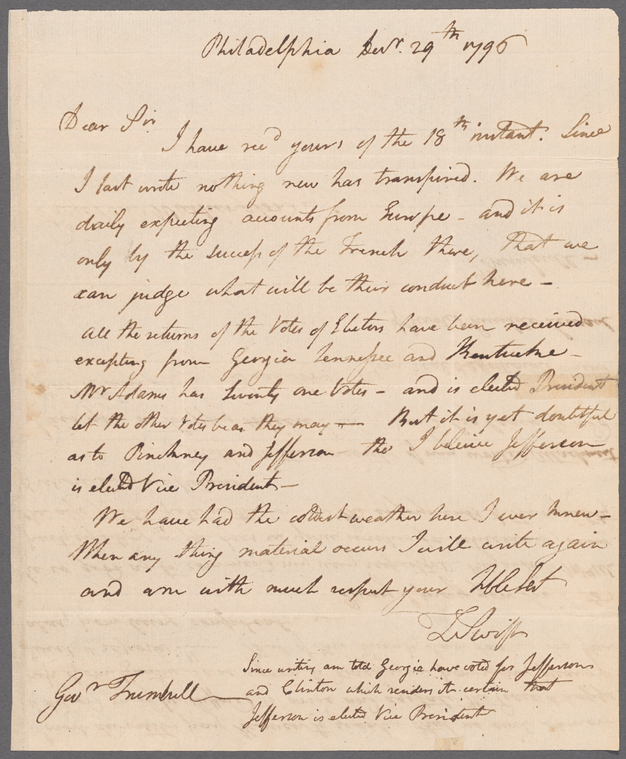 Philadelphia Decr. 29th 1796
Dear Sir
I have recd yours of the 18th instant. Since
I last wrote nothing new has transpired. We are
daily expecting accounts from Europe - and it is
only by the success of the French there, that we
can judge what will be their conduct here -
All the returns of the Votes of Electors have been received
excepting from Georgia Tennessee and Kentucke -
Mr Adams has seventy one Votes - and is elected President
let the other Votes be as they may - But it is yet doubtful
as to Pinckney and Jefferson - tho I beleive Jefferson
is elected Vice President -
We have had the coldest weather here I ever knew -
When any thing material occurs I will write again
and am with much respect your Hble Sert
Z Swift
Govr Trumbull
Since writing am told Georgia have voted for Jefferson
and Clinton which renders it certain that
Jefferson is elected Vice President